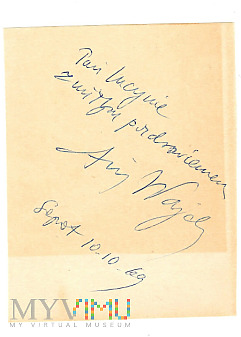 Pani Lucynie
z miłym pozdrowieniem
Wajda
Sopot 10.10.69
MYVIMU
MY VIRTUAL MUSEUM